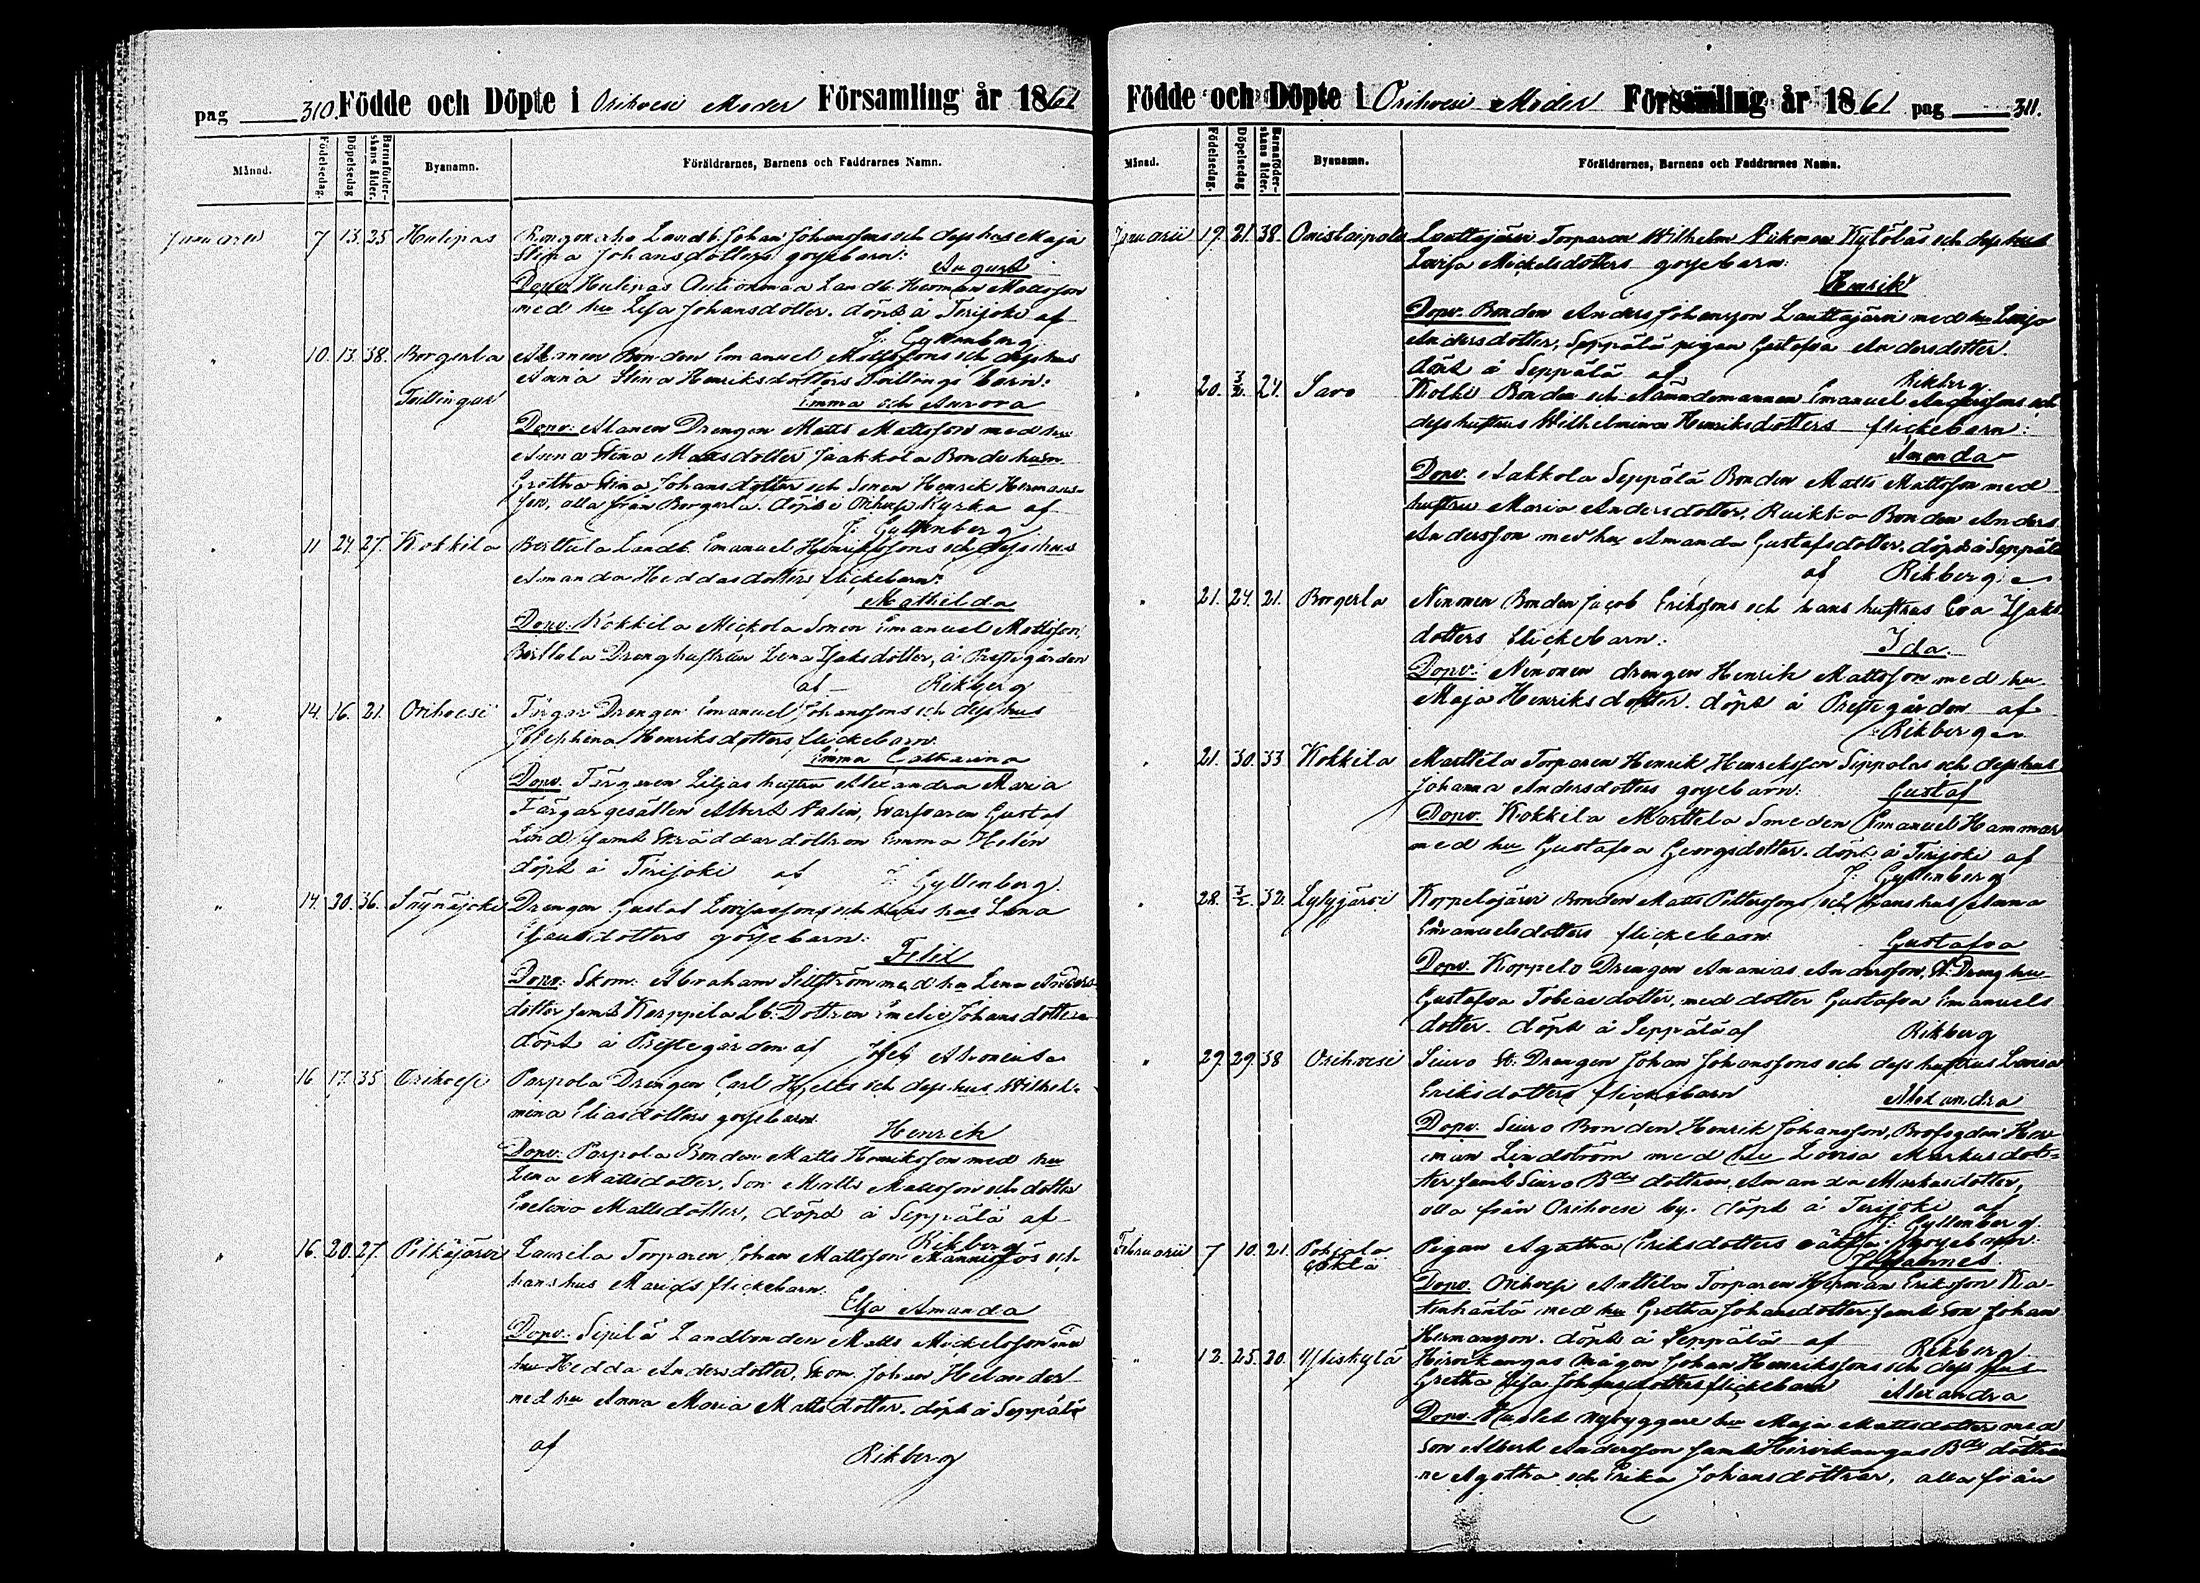 pag 310. Födde och Döpte i Orihvesi Moder Församling år 1861
Månad. Födelsedag. Döpelsedag Barnaföderskans ålder. Bysnamn. Föräldrarnes, Barnens och Faddrarnes Namn.
Januarii 7 13. 35 Hulipas Landb. Johan Johanssons och dess hus Maja
Stina Johansdotters gossebarn:
August
Dopv: Hulipas Landb. Herman Mattsson
med hu Lisa Johansdotter. döpt å Terijoki af
J: Gyllenberg
" 10. 13. 38. Borgerla Alanen Bonden Emanuel Mattssons och dess hus
Anna Stina Henriksdotters Tvillings barn:
Tvillingar Emma och Aurora
Dopv: Alanen Drengen Matts Mattsson med hu
Anna Stina Mattsdotter Jaakkola Bonde hustrun
Gretha Stina Johansdotter och Sonen Henrik Hermans-
son, alla från Borgerla. döpt i Orihvesi Kyrka af
J: Gyllenberg
" 11 24. 27. Kokkila Berttula Landb. Emanuel Henrikssons och dess hus
Amanda Heddasdotters flickebarn:
Mathilda
Dopv: Kokkila Mickola Sonen Emanuel Mattsson,
Berttula Dreng hustrun Lena Isaksdotter, å Prestegården
af Rikberg
" 14. 16. 21. Orihvesi Färgar Drengen Emanuel Johanssons och dess hus
Josephina Henriksdotters flickebarn
Emma Catharina
Dopv: Färgaren Liljas hustru Alexandra Maria
Färgargesällen Albert Valin, Svarfvaren Gustaf
Lind samt Skräddar dottron Emma Helén
döpt å Terijoki af J: Gyllenberg.
" 14. 20. 36. Drengen Gustaf och hans hus Lena
gossebarn:
Felix
Dopv: Skom. Abraham Sillström med hu Lena Anders-
dotter samt Karppila Lb: Dottren Emelie Johansdotter
döpt å Prestegården af Josef
" 16. 17. 35 Orihvesi Parpola Drengen Carl och dess hus Wilhel-
mina Eliasdotters gossebarn
Henrik
Dopv: Parpola Bonden Matts Henriksson med hu
Lena Mattsdotter, Son Matts Mattsson och dotter
Evelina Mattsdotter, döpt å Seppälä af
Rikberg
" 16. 20. 27. Pitkäjärvi Laurila Torparen Johan Mattsson Männistös och
hans hus Marias flickebarn.
Elsa Amanda
Dopv: Sipilä Landbonden Matts Mickelsson med
hu Hedda Andersdotter, Skom. Johan Helander
med hu Anna Maria Mattsdotter. döpt å Seppälä
af Rikberg
Födde och Döpte i Orihvesi Moder Församling år 1861 pag 311.
Månad. Födelsedag. Döpelsedag Barnaföderskans ålder. Bysnamn. Föräldrarnes, Barnens och Faddrarnes Namn.
Januarii 19. 21. 38. Onistaipale Lauttajärvi Torparen Wilhelm Vikman Kylöläs och dess hus
Lovisa Mickelsdotters gossebarn:
Henrik
Dopv: Bonden Anders Johansson Lauttajärvi med hu Lovisa
Andersdotter, Seppälä pigan Gustafva Andersdotter.
döpt å Seppälä af Rikberg.
" 20. 3/2. 24. Savo Kolki Bonden och Nämndemannen Emanuel Anderssons och
dess hustrus Wilhelmina Henriksdotters flickebarn:
Amanda
Dopv: Aakkola Seppälä Bonden Matts Mattsson med
hustru Maria Andersdotter, Bonden Anders
Andersson med hu Amanda Gustafsdotter. döpt å Seppälä
af Rikberg.
" 21. 24. 21. Borgerla Ninonen Bonden Jacob Erikssons och hans hustrus Eva Isaks-
dotters flickebarn:
Ida.
Dopv: Ninonen drengen Henrik Mattsson med hu
Maja Henriksdotter. döpt å Prestegården af
Rikberg
" 21. 30. 33. Kokkila Marttila Torparen Henrik Henriksson Sippolas och dess hus
Johanna Andersdotters gossebarn: Gustaf
Dopv: Kokkila Marttila Smeden Emanuel Hammar
med hu Gustafva Georgsdotter. döpt å Terijoki af
J: Gyllenberg
" 28. 3/2. 32. Lylyjärvi Koppelojärvi Bonden Matts Petterssons och hans hus Anna
Emanuelsdotters flickebarn
Gustafva
Dopv: Koppelo Drengen Ananias Andersson, St: Dreng hu
Gustafva Tobiasdotter, med dotter Gustafva Emanuels
dotter. döpt å Seppälä af Rikberg
" 29. 29. 38 Orihvesi Siuro St: Drengen Johan Johanssons och dess hustrus Lovisa
Eriksdotters flickebarn
Alexandra
Dopv: Siuro Bonden Henrik Johansson, Brofogden Her-
man Lindström med hu Lovisa Markusdot-
ter samt Siuro Bdes dottren Amanda Markusdotter,
alla från Orihvesi by. döpt å Terijoki af
J: Gyllenberg.
Februarii 7 10. 21. Pohjala Pigan Agatha Eriksdotters oäkta gossebarn:
oäkta Johannes
Dopv: Orihvesi Anttila Torparen Herman Eriksson
med hu Gretha Johansdotter samt Son Johan
Hermansson. döpt å Seppälä af Rikberg
" 12. 25. 20. Yliskylä Hirvikangas Mågen Johan Henrikssons och dess hus
Gretha Lisa Johansdotters flickebarn Alexandra
Dopv: nybyggare hu Maja Mattsdotter med
Son Albert Andersson samt Hirvikangas Bdes döttrar-
ne Agatha och Erika Johansdöttrar, alla från